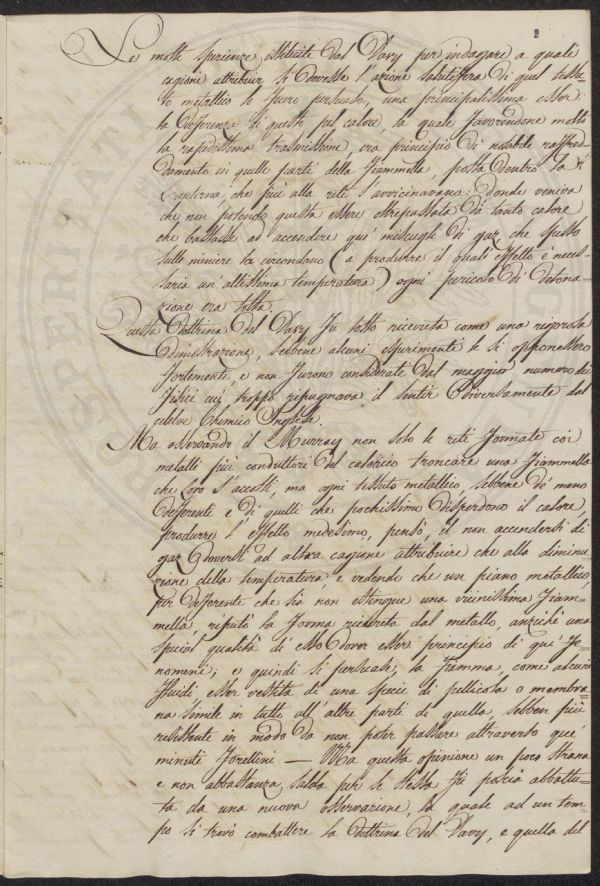 2
Le molte sperienze istituite dal Davy per indagare a quale
cagione attribuir si dovesse l'azione salutifera di quel tessu-
to metallico lo fecero persuaso, una principalissima esser
la differenza di questo pel calore, la quale favorendone molto
la rapidissima trasmissione, era principio di notabile raffred-
damento in quelle parti della fiammella, posta dentro la
Lanterna che più alla rete s'avvicinavano: donde veniva
che non potendo questa essere oltrepassata da tanto calore
che bastasse ad accendere que' miscugli di gaz che spesso
nelle miniere la circondano (a produrre il quale effetto è neces-
saria un'altissima temperatura) ogni pericolo di detona-
zione era tolto.
Questa dottrina del Davy fu tosto ricevuta come una rigorosa
dimostrazione, sebbene alcuni esperimenti le si opponessero
fortemente, e non furono considerati dal maggior numero dei
Fisici cui troppo ripugnava il sentir diversamente dal
celebre Chimico Inglese.
Ma osservando il Murray non solo le reti formate coi
metalli più conduttori del calorico troncare una fiammella
che loro s'accosti, ma ogni tessuto metallico, sebbene de' meno
deferenti e di quelli che pochissimo disperdono il calore,
produrre l'effetto medesimo, pensò, il non accendersi di
gaz doversi ad altra cagione attribuire che alla diminu
zione della temperatura e vedendo che un piano metallico
per deferente che sia non estingue una vicinissima fiam-
mella, reputò la forma ricevuta dal metallo, anzichè una
special qualità di esso dover esser principio di que' fe-
nomeni; e quindi si persuase, la fiamma, come alcuni
fluidi esser vestita di una specie di pellicola o membra-
na simile in tutto all'altre parti di quella, sebben più
resistente in modo da non poter passare attraverso que'
minuti forellini — Ma questa opinione un poco strana
e non abbastanza salda per se stessa fu poscia abbattu-
ta da una nuova osservazione, la quale ad un tem-
po si trovò combattere la dottrina del Davy, e quella del